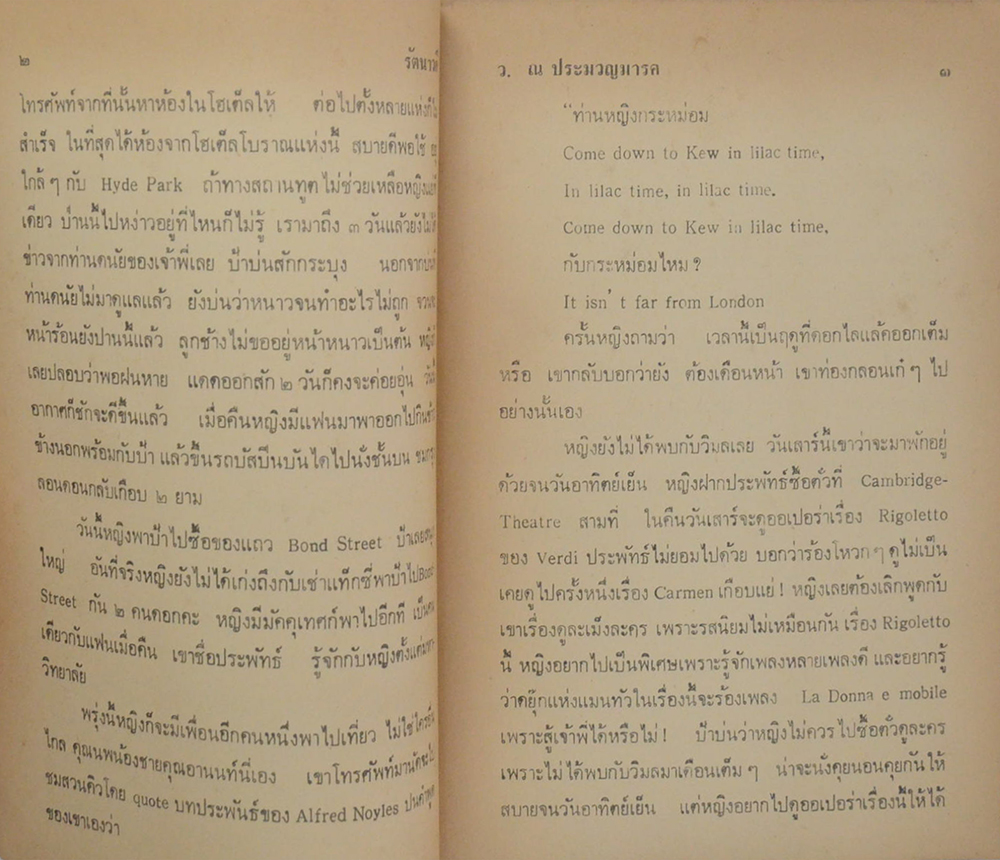 ๒ รัตนาวดี
โทรศัพท์จากที่นั้นหาห้องในโฮเต็ลให้ ต่อไปตั้งหลายแห่งก็ไม่
สำเร็จ ในที่สุดได้ห้องจากโฮเต็ลโบราณแห่งนี้ สบายดีพอใช้ อยู่
ใกล้ ๆ กับ Hyde Park ถ้าทางสถานทูตไม่ช่วยเหลือหญิง
เดียว ป่านนี้ไปหง่าวอยู่ที่ไหนก็ไม่รู้ เรามาถึง ๓ วันแล้วยังไม่ได้
ข่าวจากท่านดนัยของเจ้าพี่เลย ป้าบ่นสักกระบุง นอกจากบ่นที่
ท่านดนัยไม่มาดูแลแล้ว ยังบ่นว่าหนาวจนทำอะไรไม่ถูก จวน
หน้าร้อนยังปานนี้แล้ว ลูกช้างไม่ขออยู่หน้าหนาวเป็นต้น หญิงก็
เลยปลอบว่าพอฝนหาย แดดออกสัก ๒ วันก็คงจะค่อยอุ่น วันนี้
อากาศก็ชักจะดีขึ้นแล้ว เมื่อคืนหญิงมีแฟนมาพาออกไปกินข้าว
ข้างนอกพร้อมกับป้า แล้วขึ้นรถบัสปีนบันไดไปนั่งชั้นบน ชมกรุง
ลอนดอนกลับเกือบ ๒ ยาม
วันนี้หญิงพาป้าไปซื้อของแถว Bond Street ป้าเลยสนุก
ใหญ่ อันที่จริงหญิงยังไม่ได้เก่งถึงกับเช่าแท็กซี่พาป้าไป Bond
Street กัน ๒ คนดอกคะ หญิงมีมัคคุเทศก์พาไปอีกที เป็นคน
เดียวกับแฟนเมื่อคืน เขาชื่อประพัทธ์ รู้จักกับหญิงตั้งแต่
วิทยาลัย
พรุ่งนี้หญิงก็จะมีเพื่อนอีกคนหนึ่งพาไปเที่ยว ไม่ใช่ใครอื่น
ไกล คุณนพน้องชายคุณอานนท์นี่เอง เขาโทรศัพท์มานัดจะไป
ชมสวนคิวโดย quote บทประพันธ์ของ Alfred Noyles ปนคำพูด
ของเขาเองว่า
ว. ณ ประมวญมารค ๓
“ท่านหญิงกระหม่อม
Come down to Kew in lilac time,
In lilac time, in lilac time.
Come down to Kew in lilac time,
กับกระหม่อมไหม ?
It isn't far from London
ครั้นหญิงถามว่า เวลานี้เป็นฤดูที่ดอกไลแล้คออกเต็ม
หรือ เขากลับบอกว่ายัง ต้องเดือนหน้า เขาท่องกลอนเก๋ ๆ ไป
อย่างนั้นเอง
หญิงยังไม่ได้พบกับวิมลเลย วันเสาร์นี้เขาว่าจะมาพักอยู่
ด้วยจนวันอาทิตย์เย็น หญิงฝากประพัทธ์ซื้อตั๋วที่ Cambridge-
Theatre สามที่ ในคืนวันเสาร์จะดูออเปอร่าเรื่อง Rigoletto
ของ Verdi ประพัทธ์ไม่ยอมไปด้วย บอกว่าร้องโหวก ๆ ดูไม่เป็น
เคยดูไปครั้งหนึ่งเรื่อง Carmen เกือบแย่ ! หญิงเลยต้องเลิกพูดกับ
เขาเรื่องดูละเม็งละคร เพราะรสนิยมไม่เหมือนกัน เรื่อง Rigoletto
นี้ หญิงอยากไปเป็นพิเศษเพราะรู้จักเพลงหลายเพลงดี และอยากรู้
ว่าดยุ๊กแห่งแมนทัวในเรื่องนี้จะร้องเพลง La Donna e mobile
เพราะสู้เจ้าพี่ได้หรือไม่ ! ป้าบ่นว่าหญิงไม่ควรไปซื้อตั๋วดูละคร
เพราะไม่ได้พบกับวิมลมาเดือนเต็ม ๆ น่าจะนั่งคุยนอนคุยกันให้
สบายจนวันอาทิตย์เย็น แต่หญิงอยากไปดูออเปอร่าเรื่องนี้ให้ได้